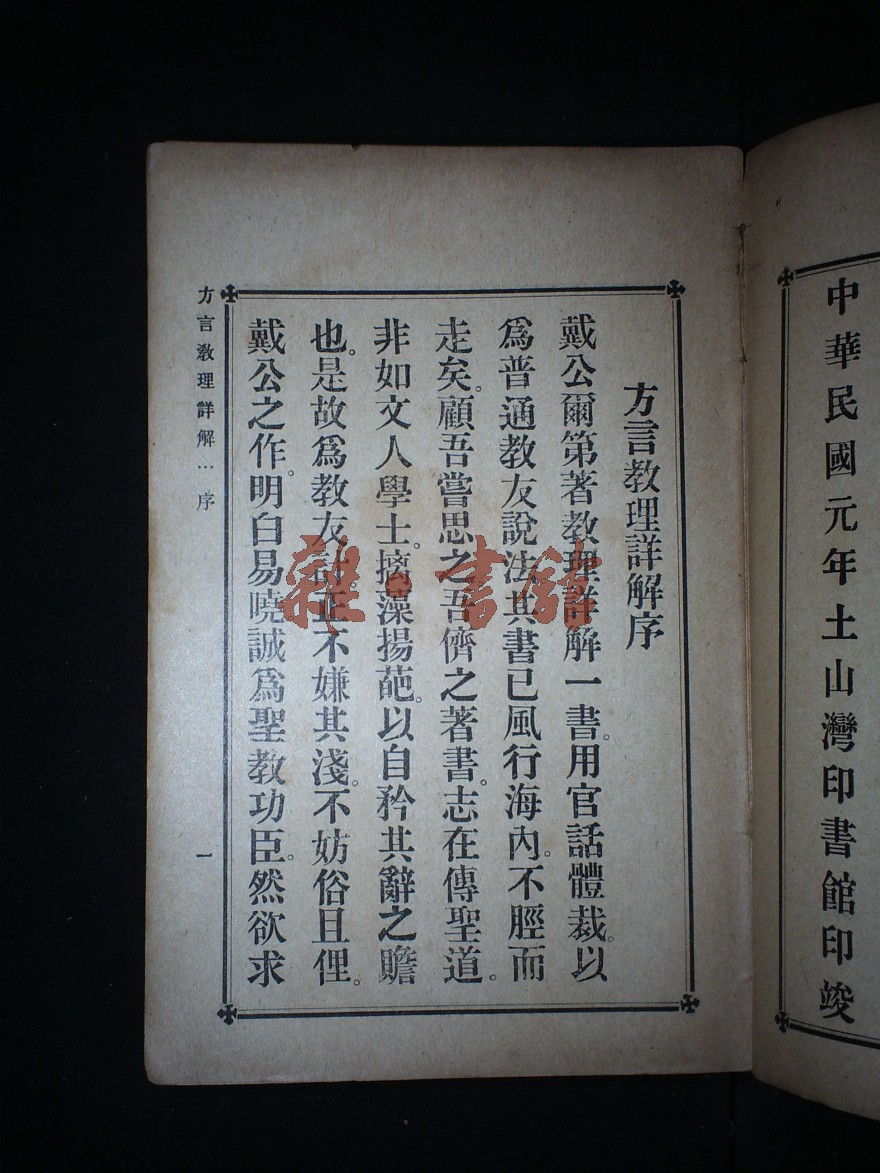 中華民國元年土山灣印書館印竣
方言教理詳解序
戴公爾第著教理詳解一書。用官話體裁。以
爲普通教友說法。其書已風行海內。不脛而
走矣。顧吾嘗思之。吾儕之著書。志在傳聖道。
非如文人學士。摛藻揚葩。以自矜其辭之贍
也。是故爲教友計。正不嫌其淺。不妨俗且俚。
戴公之作。明白易曉。誠爲聖教功臣。然欲求
方言教理詳解… 序
一
雜·書館